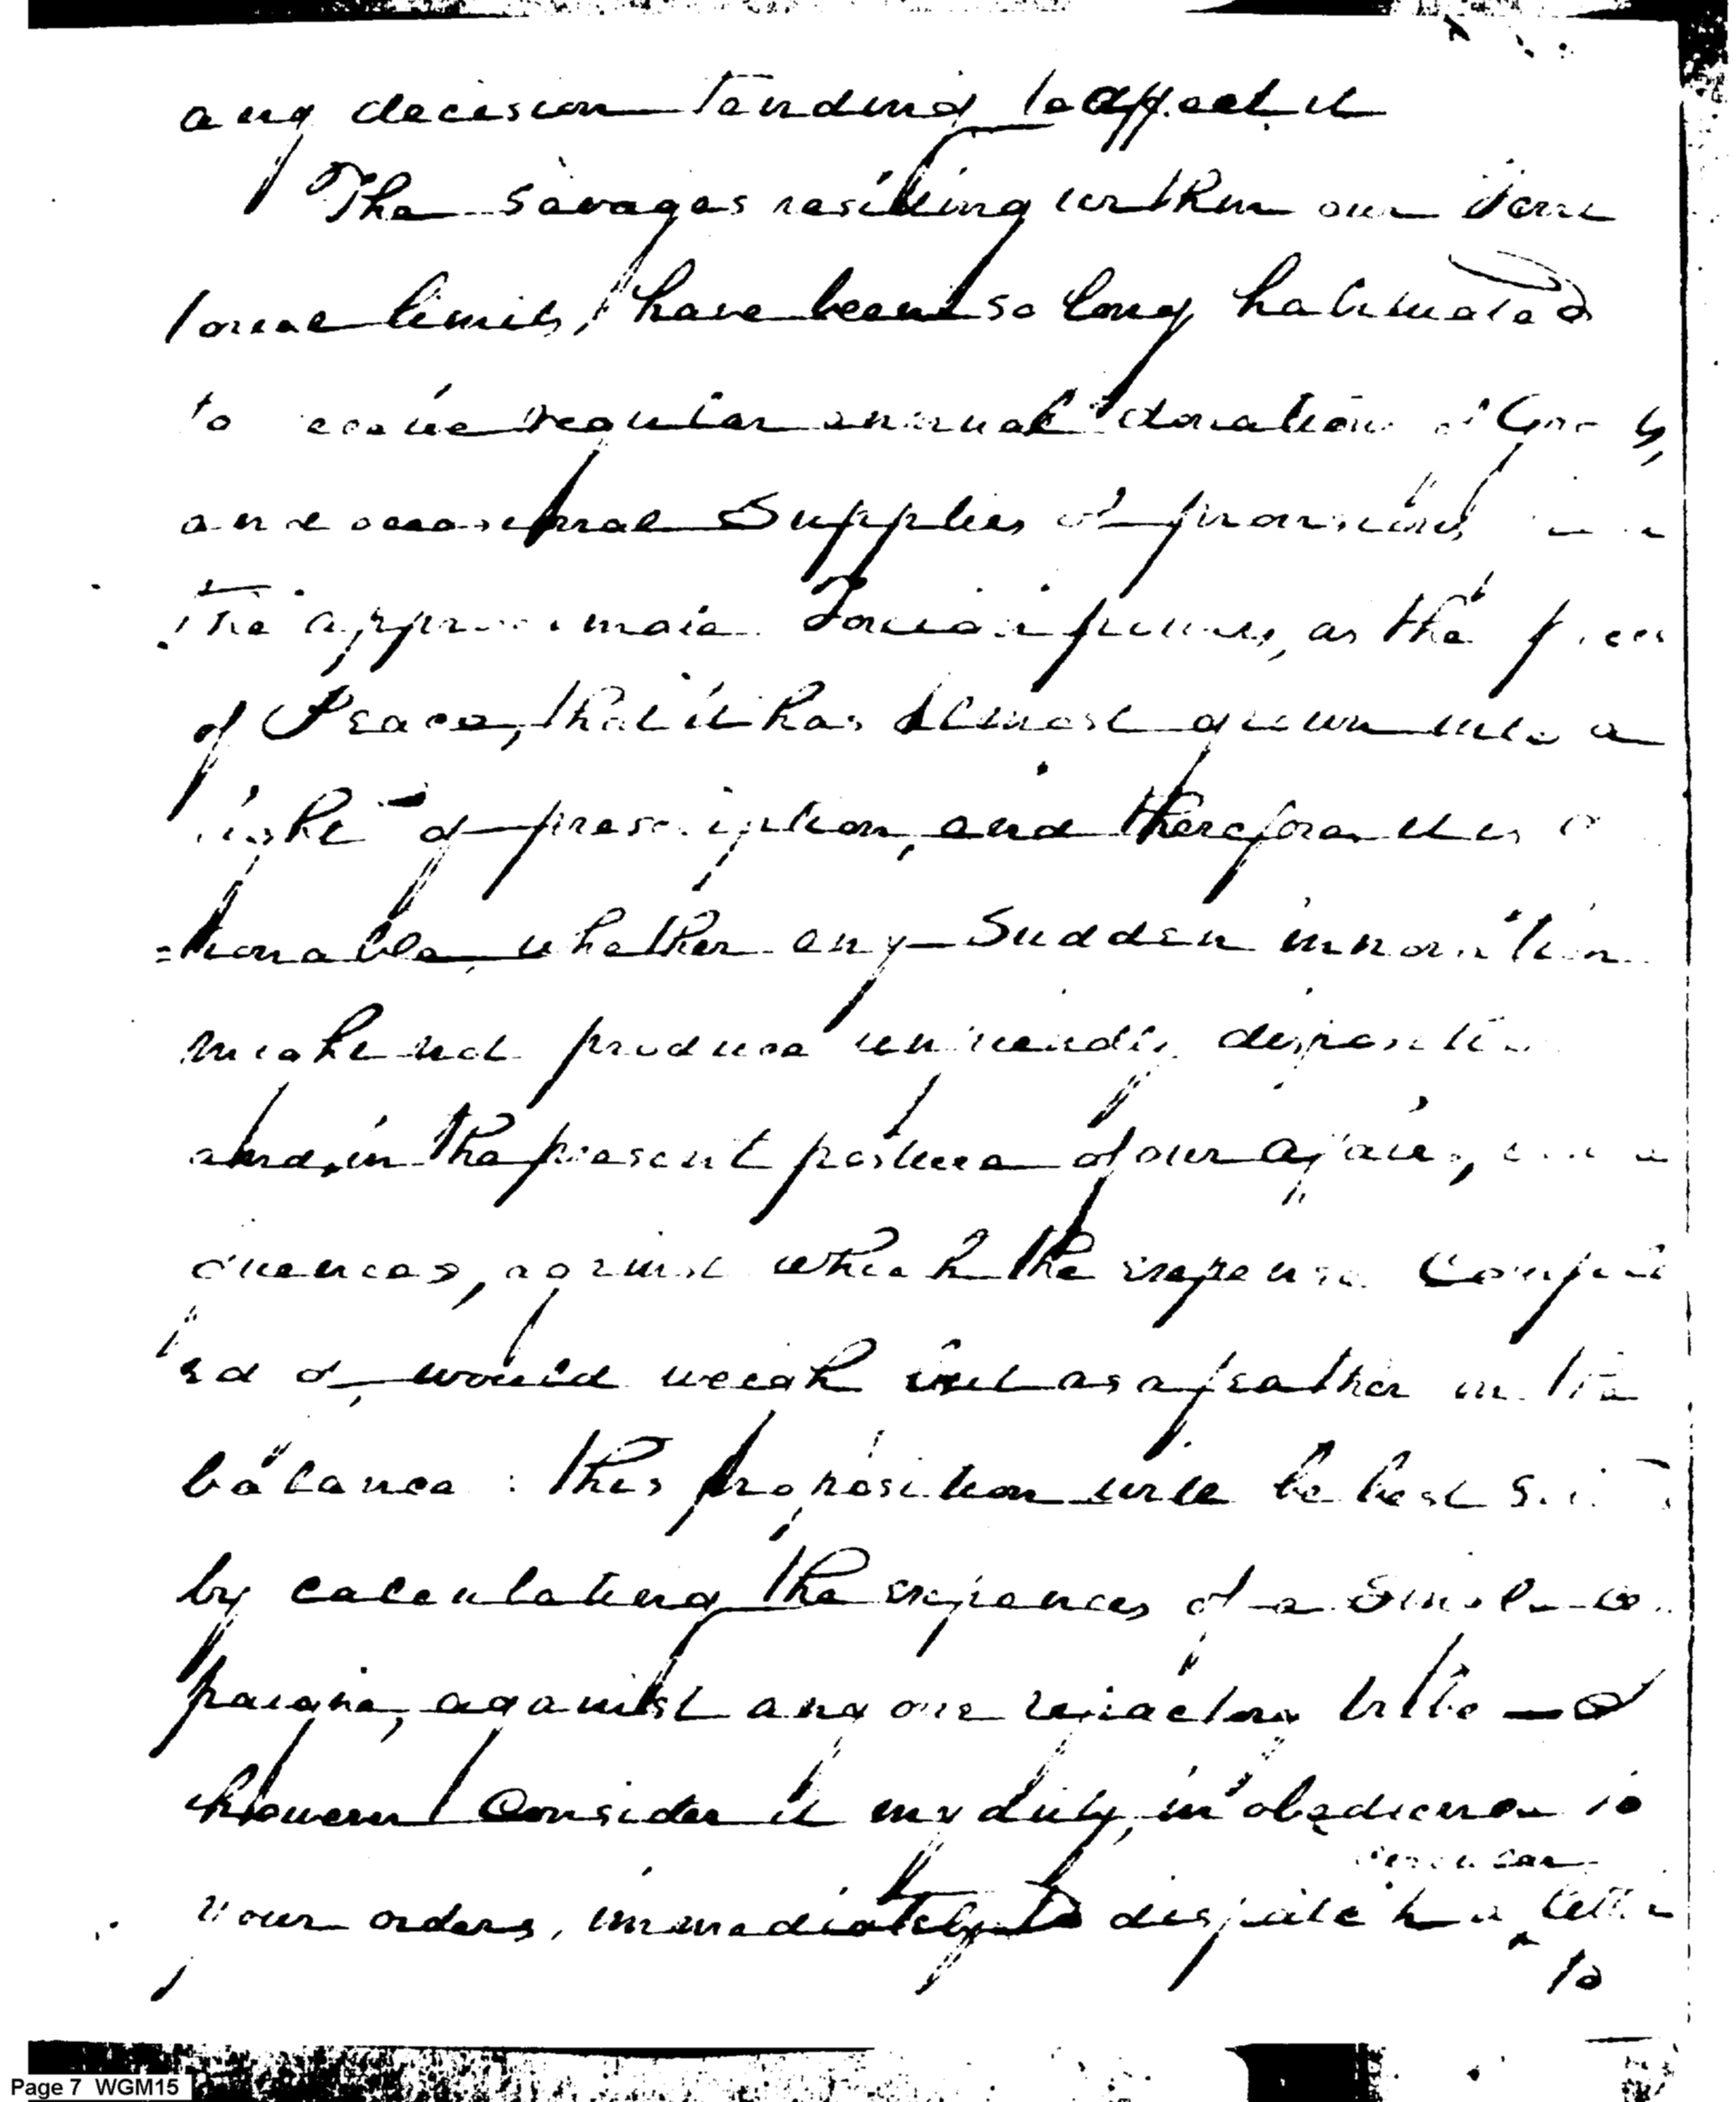 any decision tending to affect it
The savages residing within our Terri
torial limits, have been so long habituated
to receive regular annual donations of Goods,
and occasional Supplies of provisions
the approximate Foreign powers, as the price
of Peace, that it has almost grown into a
right of prescription, and therefore it is
=tionable, whether any Sudden innovation
might not produce unfriendly disposition
and, in the present posture of our affairs,
quences, against which the expense Complain
ed of, would weigh but as a feather in the
balance: this proposition will be best
by calculating the expences of a Single
paigne, against any one refractory tribe —
however I Consider it my duty, in obedience to
circular
your orders, immediately to dispatch a letter
to
Page 7 WGM15